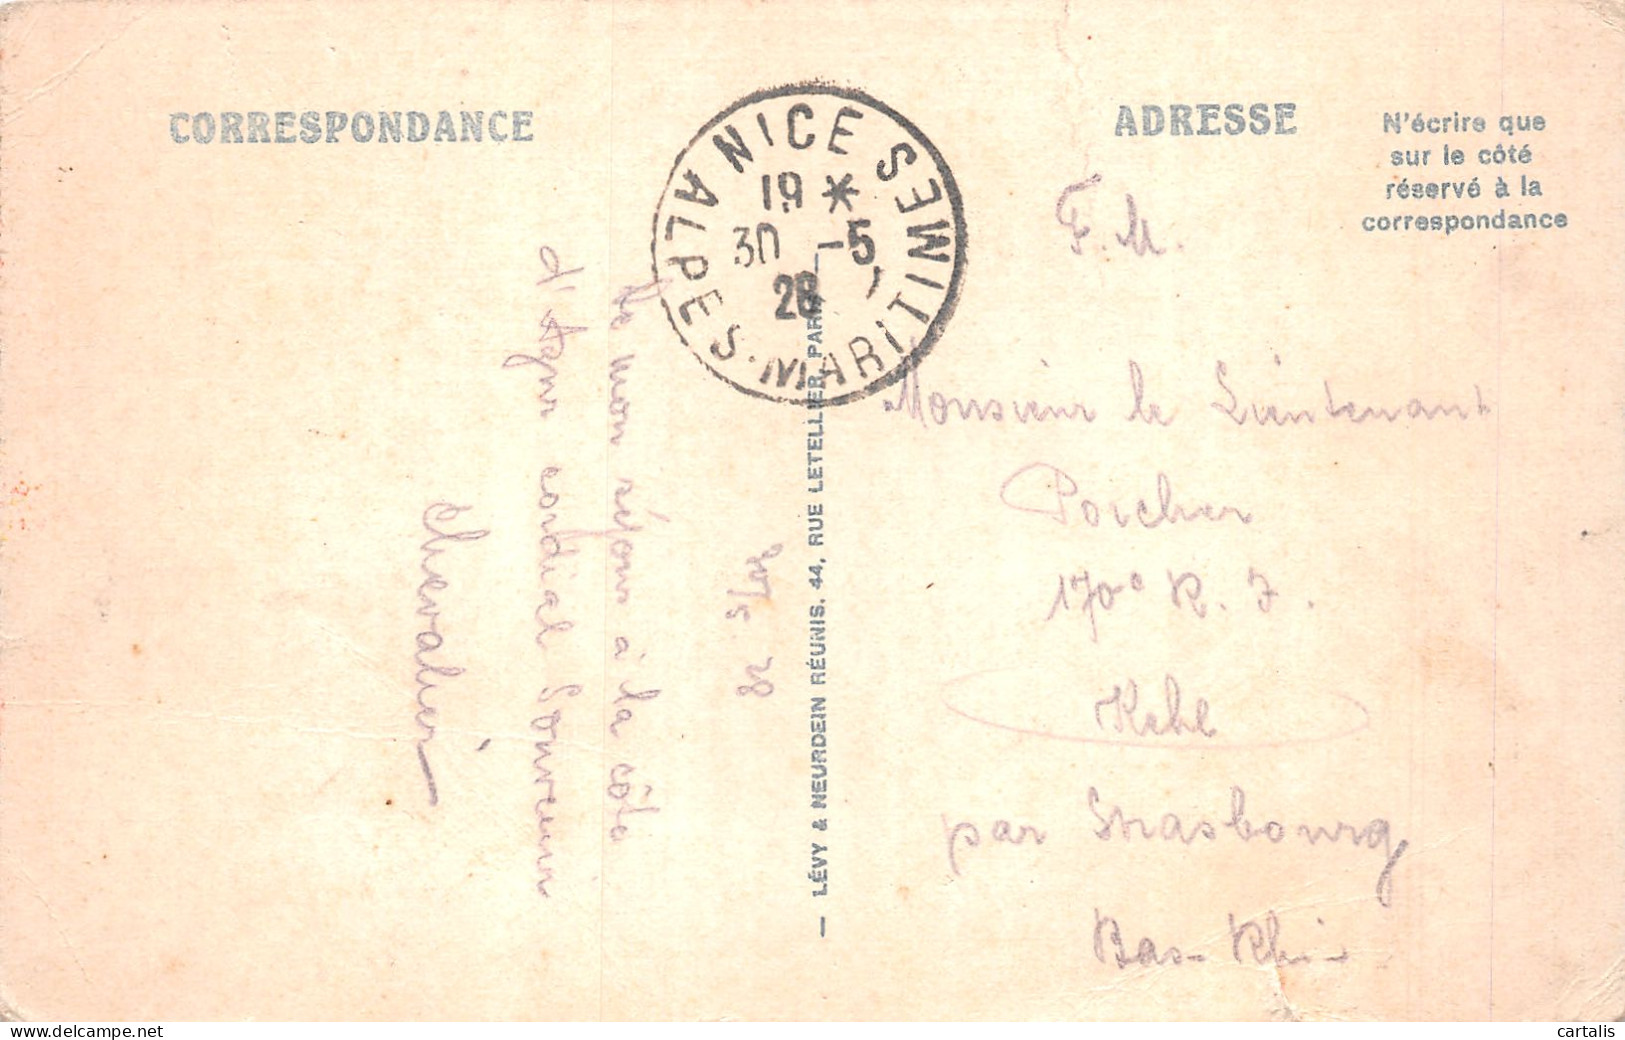 CORRESPONDANCE
ADRESSE
N'écrire que
sur le côté
réservé à la
correspondance
NICE
ALPES-MARITIMES
19 *
30 -5
28
F.M.
de mon séjour à la côte
d'Azur cordial Souvenir
Chevalier
LÉVY & NEURDEIN RÉUNIS, 44, RUE LETELLIER, PARIS
Monsieur le Lieutenant
Porcher
170e R. I.
Kehl
par Strasbourg
Bas-Rhin
delcampe.net
cartalis